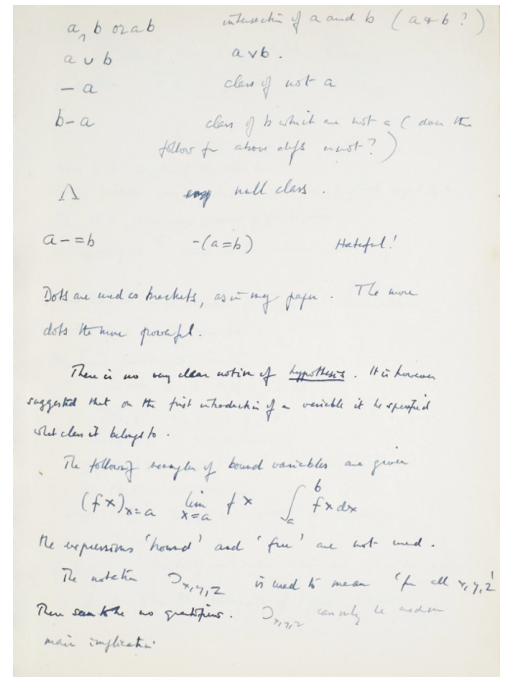 a ∩ b or ab intersection of a and b ( a & b ? )
a ∪ b a v b .
– a class of not a
b – a class of b which are not a ( does the
follow fr above defs or not ? )
Λ null class .
a – = b – (a = b) Hateful !
Dots are used as brackets, as in my paper . The more
dots the more powerful .
There is no very clear notion of hypothesis . It is however
suggested that on the first introduction of a variable it be specified
what class it belongs to .
The following examples of bound variables are given
(f x)x = a lim x = a f x ∫ab f x dx
The expressions 'bound' and 'free' are not used .
The notation Ɔx,y,z is used to mean 'for all x, y, z'
There seem to be no quantifiers . Ɔx,y,z can only be used on
main implication